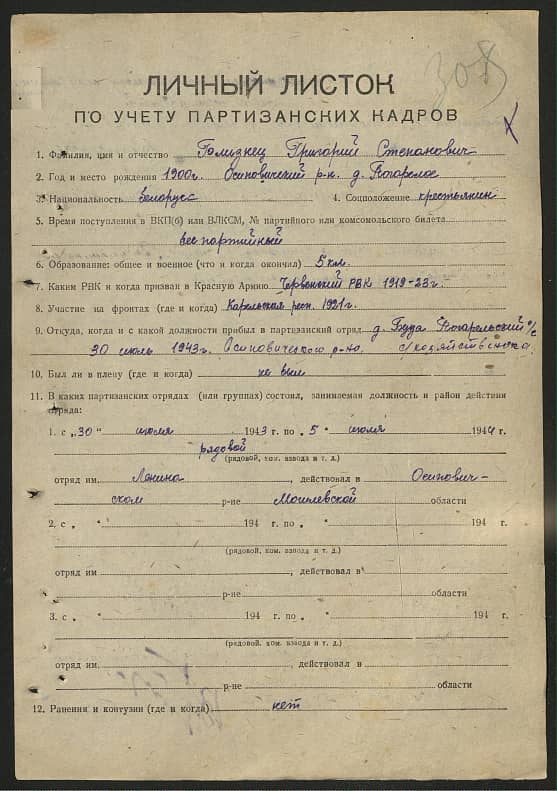 308
ЛИЧНЫЙ ЛИСТОК
ПО УЧЕТУ ПАРТИЗАНСКИХ КАДРОВ
1. Фамилия, имя и отчество Голизнец Григорий Степанович
2. Год и место рождения 1900г. Осиповичский р-н. д. Погарелое
3. Национальность белорусс 4. Соцположение крестьянин
5. Время поступления в ВКП(б) или ВЛКСМ, № партийного или комсомольского билета
бес партийный
6. Образование: общее и военное (что и когда окончил) 5 кл.
7. Каким РВК и когда призван в Красную Армию Червенский РВК 1919-23г.
8. Участие на фронтах (где и когда) Карельская респ. 1921г.
9. Откуда, когда и с какой должности прибыл в партизанский отряд д. Буда Погарельский с/с
30 июль 1943г. Осиповического р-на.
10. Был ли в плену (где и когда) не был
11. В каких партизанских отрядах (или группах) состоял, занимаемая должность и район действия
отряда:
1. с „30" июля 1943 г. по „5" июля 1944 г.
рядовой
(рядовой, ком. взвода и т. д.)
отряд им. Ленина, действовал в Осипович-
ском р-не Могилевской области
2. с „ " 194 г. по „ " 194 г.
(рядовой, ком. взвода и т. д.)
отряд им , действовал в
р-не области
3. с „ " 194 г. по „ " 194 г.
(рядовой, ком. взвода и т. д.)
отряд им. , действовал в
р-не области
12. Ранения и контузии (где и когда) нет